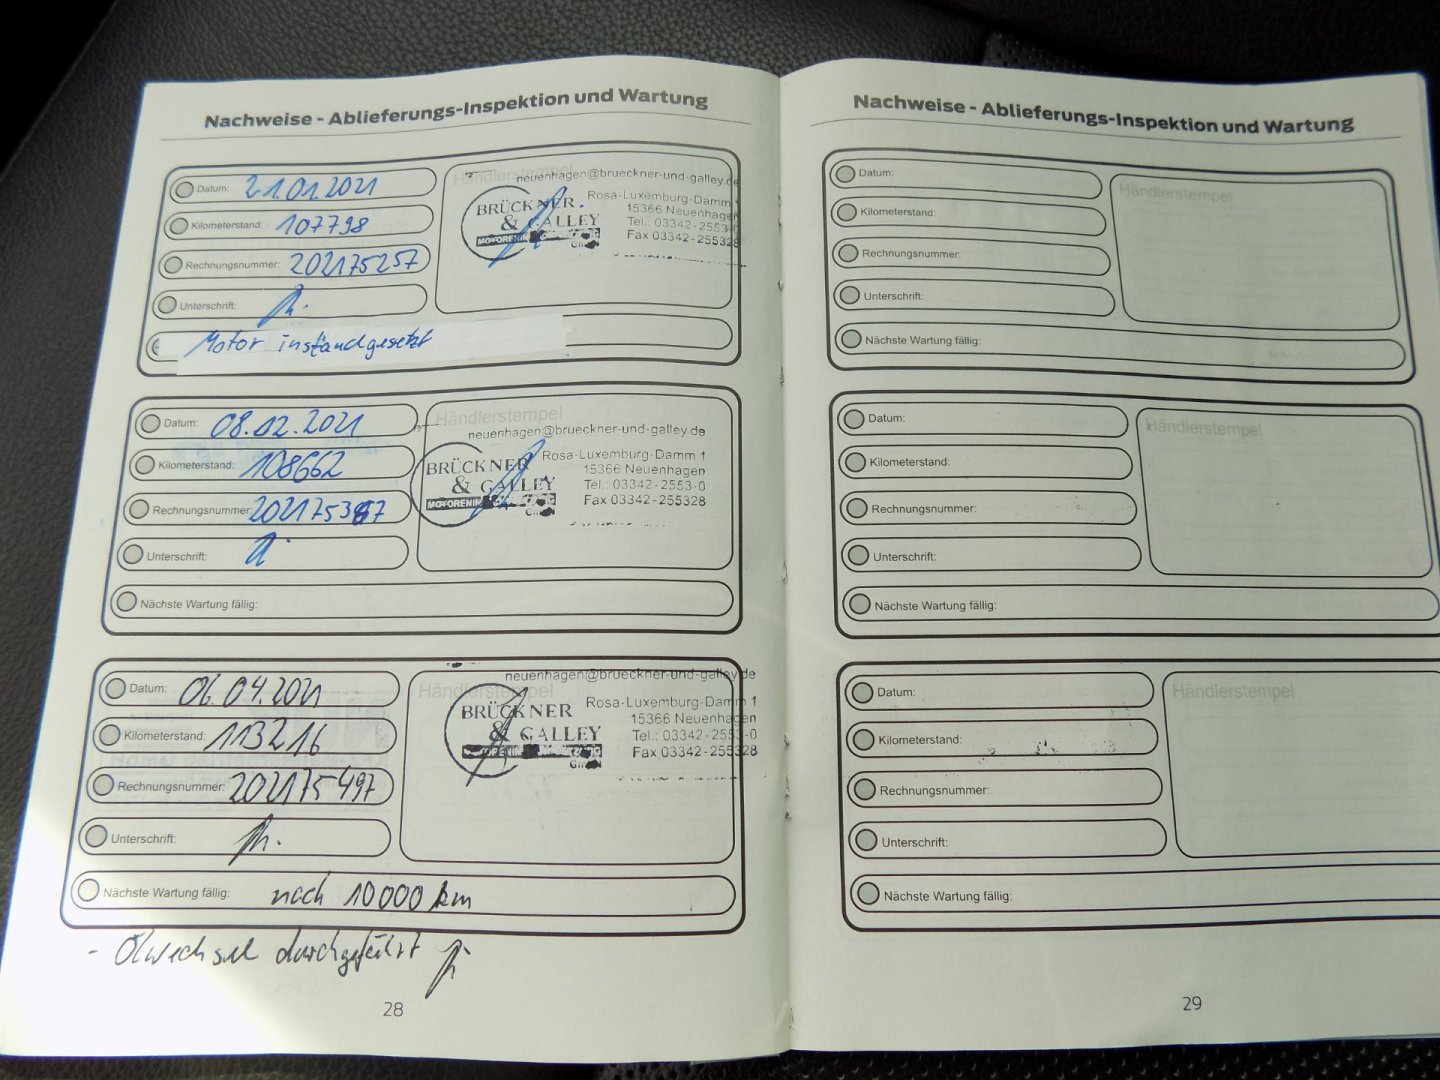 Nachweise - Ablieferungs-Inspektion und Wartung
Datum: 21.01.2021
Kilometerstand: 107798
Rechnungsnummer: 202175257
Unterschrift:
Motor instandgesetzt
Händlerstempel
neuenhagen@brueckner-und-galley.de
BRÜCKNER & GALLEY
GmbH
Rosa-Luxemburg-Damm 1
15366 Neuenhagen
Tel.: 03342-2553-0
Fax 03342-255328
Datum: 08.02.2021
Kilometerstand: 108662
Rechnungsnummer: 202175367
Unterschrift:
Nächste Wartung fällig:
Händlerstempel
neuenhagen@brueckner-und-galley.de
BRÜCKNER & GALLEY
Rosa-Luxemburg-Damm 1
15366 Neuenhagen
Tel.: 03342-2553-0
Fax 03342-255328
Datum: 06.04.2021
Kilometerstand: 113216
Rechnungsnummer: 202175497
Unterschrift:
Nächste Wartung fällig: nach 10000 km
Händlerstempel
neuenhagen@brueckner-und-galley.de
BRÜCKNER & GALLEY
GmbH
Rosa-Luxemburg-Damm 1
15366 Neuenhagen
Tel.: 03342-2553-0
Fax 03342-255328
- Ölwechsel durchgeführt
28
Nachweise - Ablieferungs-Inspektion und Wartung
Datum:
Kilometerstand:
Rechnungsnummer:
Unterschrift:
Nächste Wartung fällig:
Händlerstempel
Datum:
Kilometerstand:
Rechnungsnummer:
Unterschrift:
Nächste Wartung fällig:
Händlerstempel
Datum:
Kilometerstand:
Rechnungsnummer:
Unterschrift:
Nächste Wartung fällig:
Händlerstempel
29